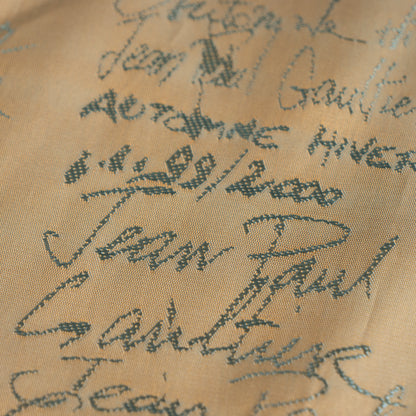 Jean Paul Gaultier
AUTOMNE HIVER
99/2000
Jean Paul
Gaultier
Jean